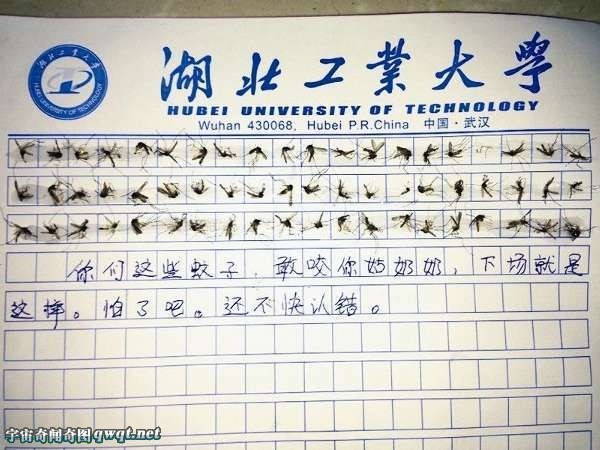 湖北工業大學
HUBEI UNIVERSITY OF TECHNOLOGY
Wuhan 430068, Hubei P.R.China 中国·武汉
你们这些蚊子,敢咬你姑奶奶,下场就是
这样。怕了吧。还不快认错。
宇宙奇闻奇图qwqt.net